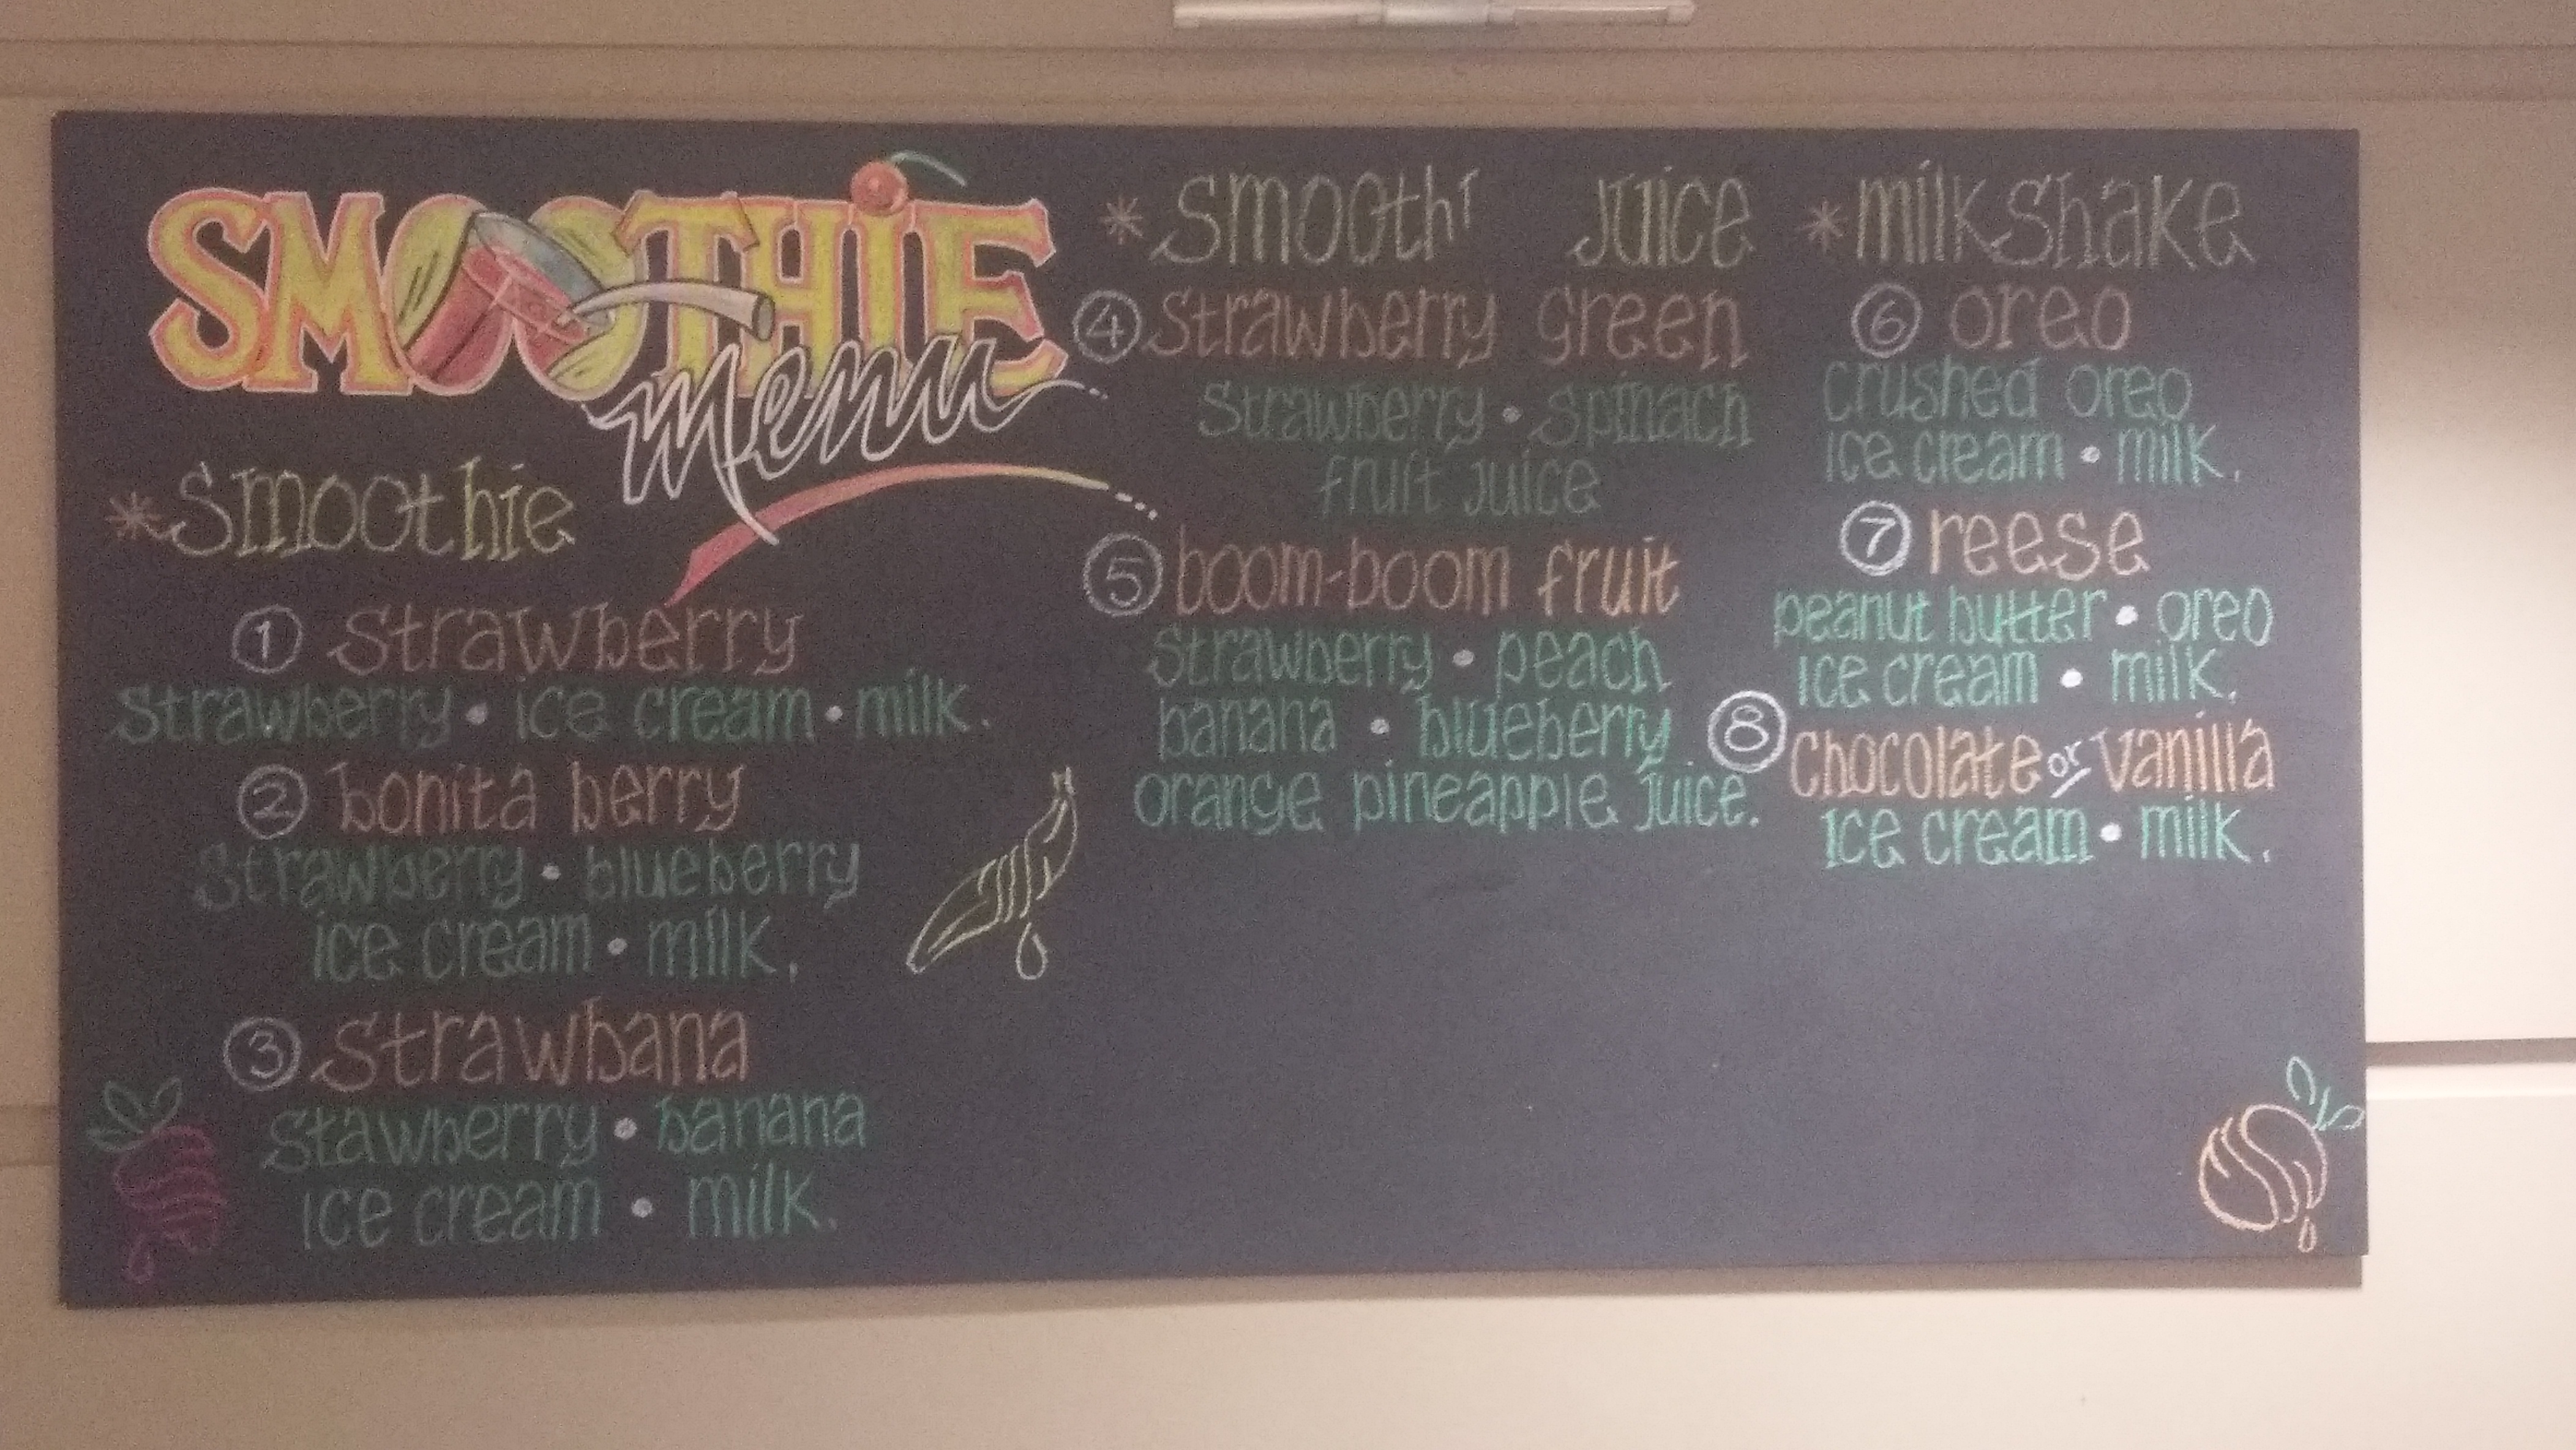 SMOOTHIE
menu
*Smoothie
1 Strawberry
Strawberry • ice cream • milk.
2 bonita berry
Strawberry • blueberry
ice cream • milk.
3 Strawbana
Stawberry • banana
ice cream • milk.
* Smoothi Juice
4 Strawberry green
Strawberry • spinach
fruit juice
5 boom-boom fruit
Strawberry • peach
banana • blueberry
orange pineapple juice.
* milkshake
6 oreo
crushed oreo
ice cream • milk.
7 reese
peanut butter • oreo
ice cream • milk.
8 chocolate or vanilla
ice cream • milk.